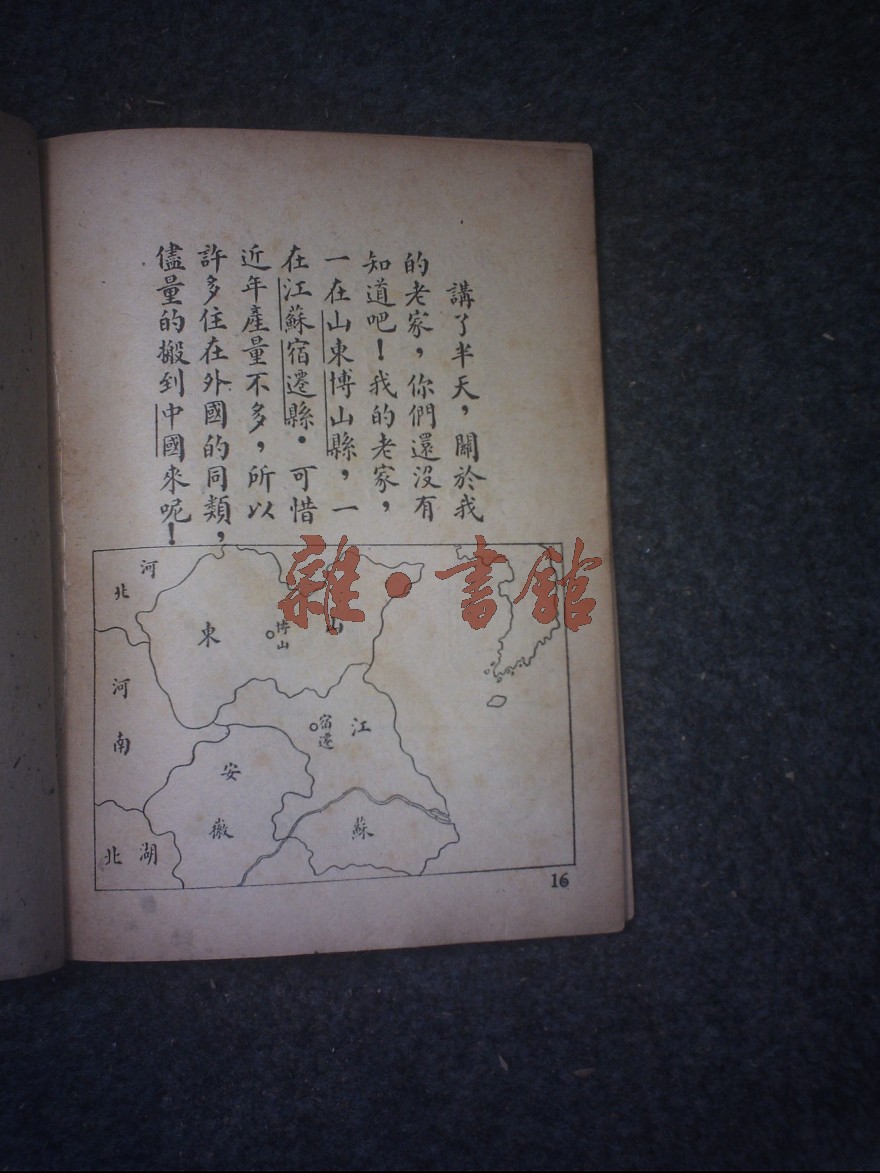 講了半天，關於我
的老家，你們還沒有
知道吧！我的老家，
一在山東博山縣，一
在江蘇宿遷縣．可惜
近年產量不多，所以
許多住在外國的同類，
儘量的搬到中國來呢！
雜·書館
河北
山東
博山
河南
宿遷
江蘇
安徽
湖北
16